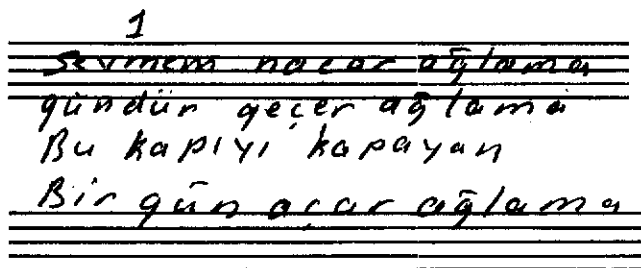 1
Sevmem naçar ağlama
gündür geçer ağlama
Bu kapıyı kapayan
Bir gün açar ağlama